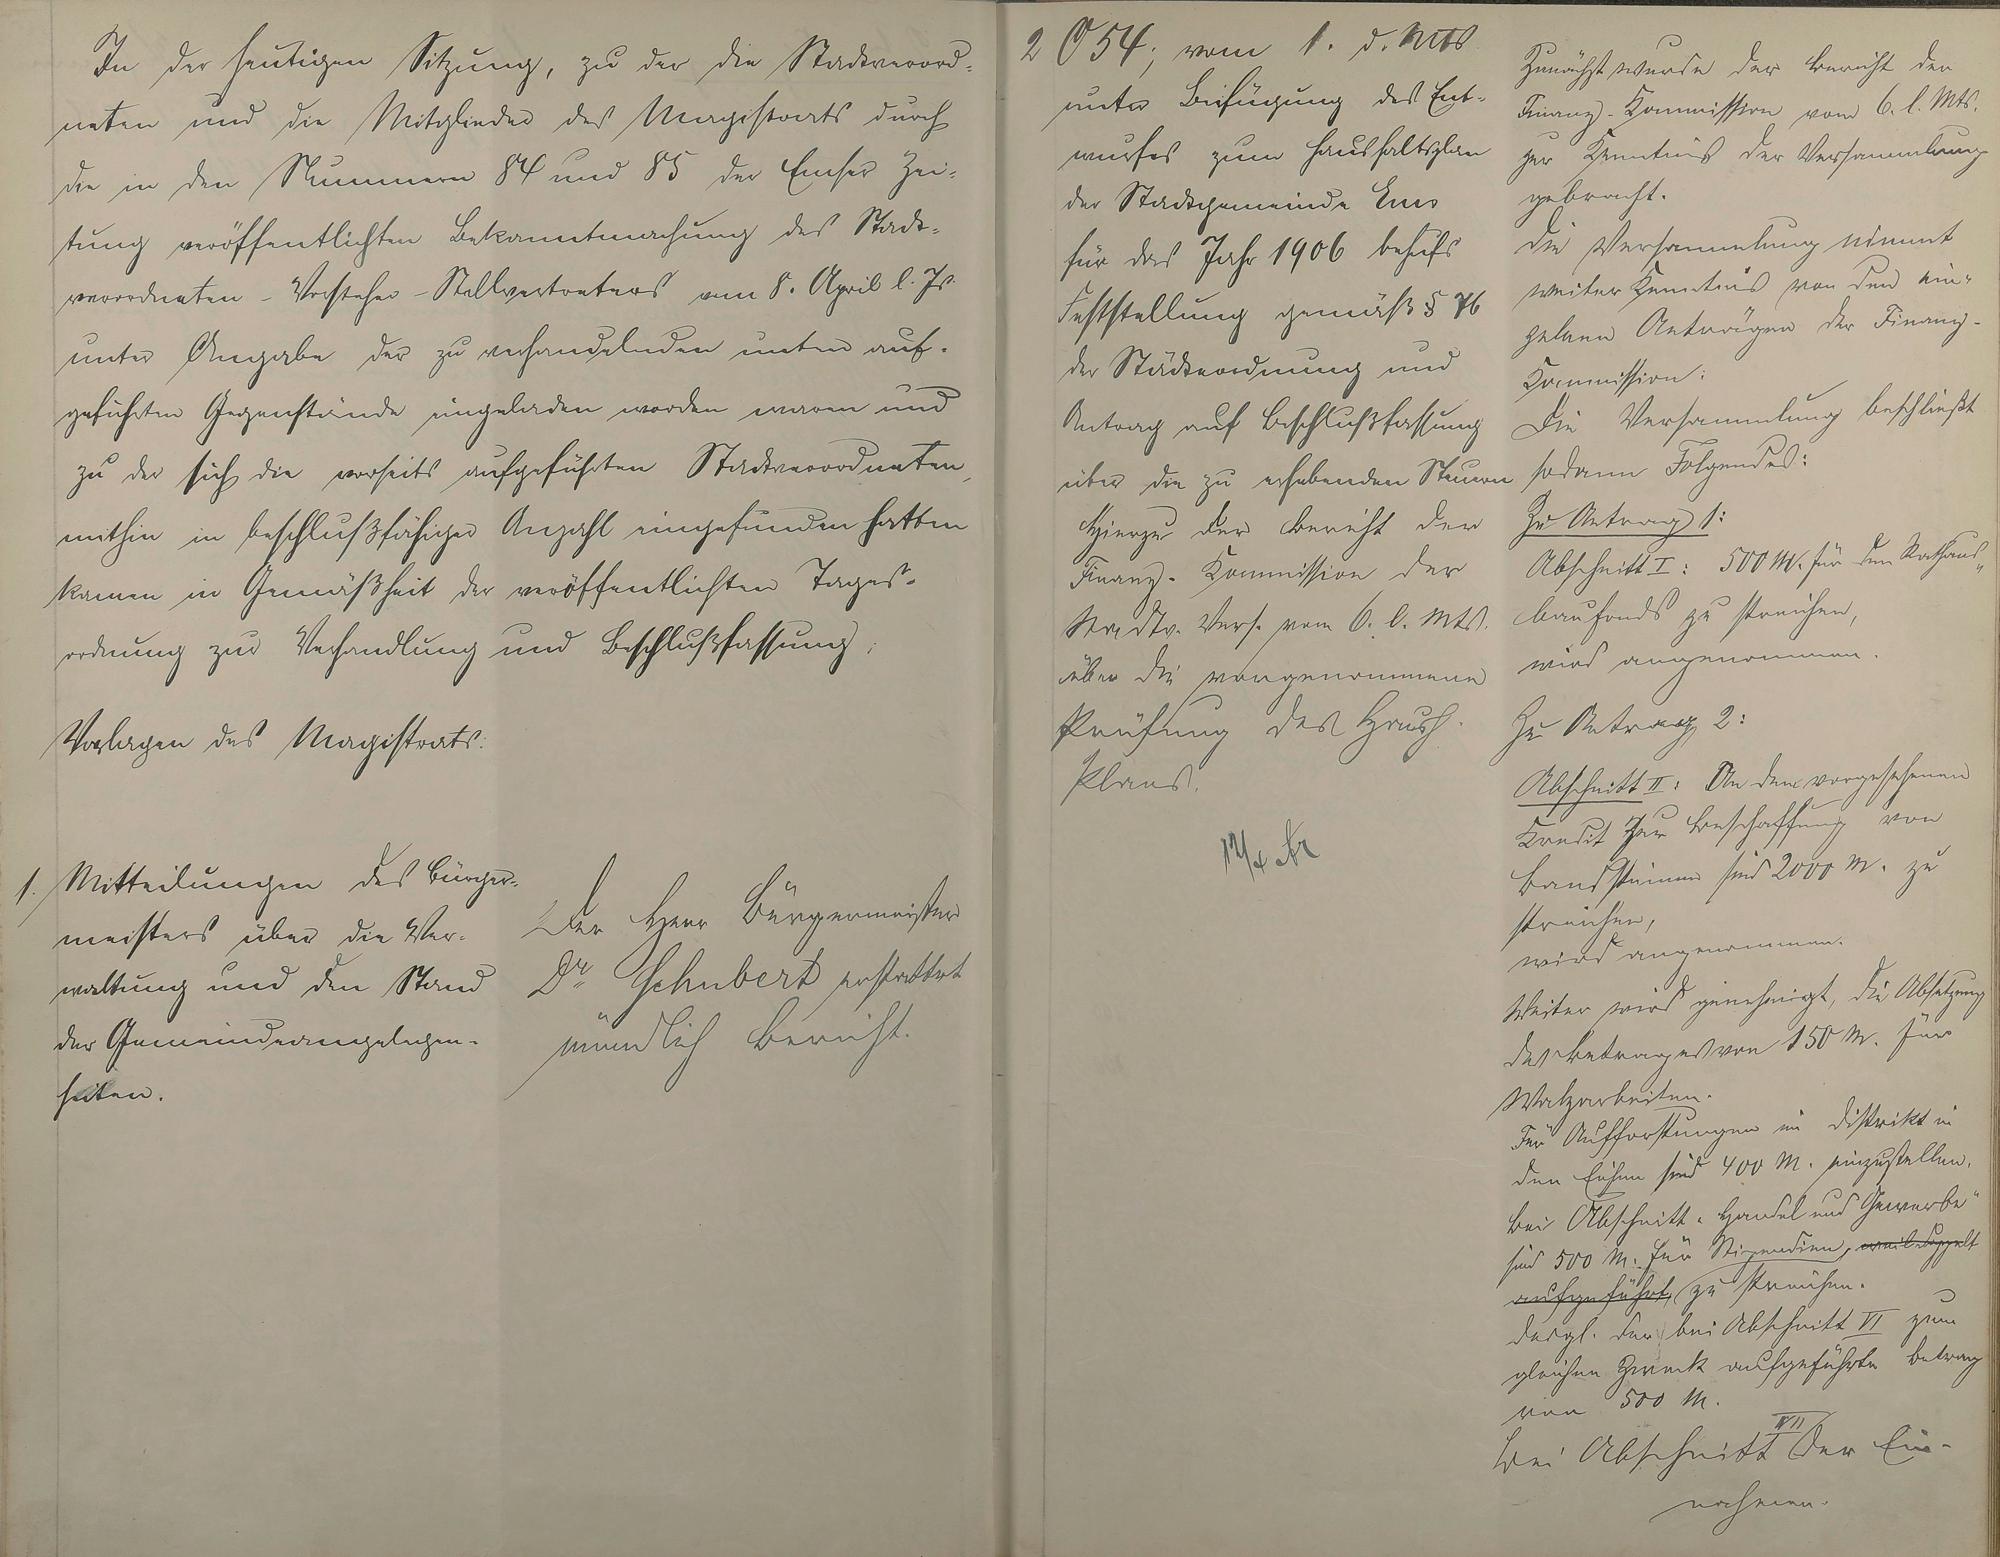 In der heutigen Sitzung, zu der die Stadtverord-
neten und die Mitglieder des Magistrats durch
die in den Nummern 84 und 85 der Emser Zei-
tung veröffentlichten Bekanntmachung des Stadt-
verordneten-Vorsteher-Stellvertreters vom 8. April l. Js.
unter Angabe der zu verhandelnden unten auf-
geführten Gegenstände eingeladen worden waren und
zu der sich die vorseits aufgeführten Stadtverordneten,
mithin in beschlußfähiger Anzahl eingefunden hatten
kamen in Gemäßheit der veröffentlichten Tages-
ordnung zur Verhandlung und Beschlußfassung:
Vorlagen des Magistrats:
1. Mitteilungen des Bürger-
meisters über die Ver-
waltung und den Stand
der Gemeindeangelegen-
heiten.
Der Herr Bürgermeister
Dr Schubert erstattet
mündlich Bericht.
2 O 54, vom 1. d. Mts
unter Beifügung des Ent-
wurfes zum Haushaltsplan
der Stadtgemeinde Ems
für das Jahr 1906 behufs
Feststellung gemäß § 76
der Städteordnung und
Antrag auf Beschlußfassung
über die zu erhebenden Steuern
Hierzu der Bericht der
Finanz-Kommission der
Stadtv. Vers. vom 6. l. Mts.
über die vorgenommene
Prüfung des Haush.
Plans.
Zunächst wurde der Bericht der
Finanz-Kommission vom 6. l. Mts.
zur Kenntnis der Versammlung
gebracht.
Die Versammlung nimmt
weiter Kenntnis von den ein-
gelnen Anträgen der Finanz-
Kommission:
Die Versammlung beschließt
sodann Folgendes:
Zu Antrag 1:
Abschnitt I: 500 M. für den Rathaus-
baufonds zu streichen,
wird angenommen.
Zu Antrag 2:
Abschnitt II: An dem vorgesehenen
Kredit zur Beschaffung von
Bandsteinen sind 2000 M. zu
streichen,
wird angenommen.
Weiter wird genehmigt, die Absetzung
des Betrages von 150 M. für
Walzarbeiten.
Für Aufforstungen im Distrikt in
den Eichen sind 400 M. einzustellen.
Bei Abschnitt "Handel und Gewerbe"
sind 500 M. für Stipendien, weil doppelt
aufgeführt, zu streichen.
desgl. der bei Abschnitt VI zum
gleichen Zweck aufgeführte Betrag
von 500 M.
Bei Abschnitt VII der Ein-
nahmen.